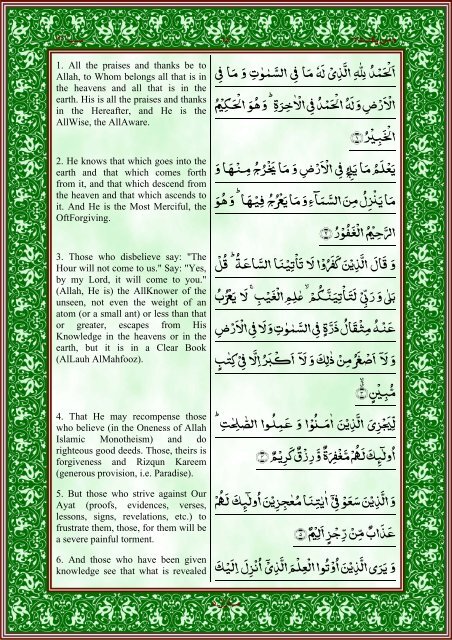 1. All the praises and thanks be to
Allah, to Whom belongs all that is in
the heavens and all that is in the
earth. His is all the praises and thanks
in the Hereafter, and He is the
AllWise, the AllAware.
اَلْحَمْدُ لِلّٰهِ الَّذِیْ لَهٗ مَا فِی السَّمٰوٰتِ وَ مَا فِی
الْاَرْضِ وَ لَهُ الْحَمْدُ فِی الْاٰخِرَةِ ؕ وَ هُوَ الْحَكِیْمُ
الْخَبِیْرُ
2. He knows that which goes into the
earth and that which comes forth
from it, and that which descend from
the heaven and that which ascends to
it. And He is the Most Merciful, the
OftForgiving.
یَعْلَمُ مَا یَلِجُ فِی الْاَرْضِ وَ مَا یَخْرُجُ مِنْهَا وَ
مَا یَنْزِلُ مِنَ السَّمَآءِ وَ مَا یَعْرُجُ فِیْهَا ؕ وَ هُوَ
الرَّحِیْمُ الْغَفُوْرُ
3. Those who disbelieve say: "The
Hour will not come to us." Say: "Yes,
by my Lord, it will come to you."
(Allah, He is) the AllKnower of the
unseen, not even the weight of an
atom (or a small ant) or less than that
or greater, escapes from His
Knowledge in the heavens or in the
earth, but it is in a Clear Book
(AlLauh AlMahfooz).
وَ قَالَ الَّذِیْنَ كَفَرُوْا لَا تَاْتِیْنَا السَّاعَةُ ؕ قُلْ
بَلٰی وَ رَبِّیْ لَتَاْتِیَنَّكُمْ ۙ عٰلِمِ الْغَیْبِ ۚ لَا یَعْزُبُ
عَنْهُ مِثْقَالُ ذَرَّةٍ فِی السَّمٰوٰتِ وَ لَا فِی الْاَرْضِ
وَ لَاۤ اَصْغَرُ مِنْ ذٰلِكَ وَ لَاۤ اَكْبَرُ اِلَّا فِیْ كِتٰبٍ
مُّبِیْنٍ
4. That He may recompense those
who believe (in the Oneness of Allah
Islamic Monotheism) and do
righteous good deeds. Those, theirs is
forgiveness and Rizqun Kareem
(generous provision, i.e. Paradise).
لِّیَجْزِیَ الَّذِیْنَ اٰمَنُوْا وَ عَمِلُوا الصّٰلِحٰتِ ؕ
اُولٰٓىِٕكَ لَهُمْ مَّغْفِرَةٌ وَّ رِزْقٌ كَرِیْمٌ
5. But those who strive against Our
Ayat (proofs, evidences, verses,
lessons, signs, revelations, etc.) to
frustrate them, those, for them will be
a severe painful torment.
وَ الَّذِیْنَ سَعَوْ فِیْۤ اٰیٰتِنَا مُعٰجِزِیْنَ اُولٰٓىِٕكَ لَهُمْ
عَذَابٌ مِّنْ رِّجْزٍ اَلِیْمٌ
6. And those who have been given
knowledge see that what is revealed
وَ یَرَی الَّذِیْنَ اُوْتُوا الْعِلْمَ الَّذِیْۤ اُنْزِلَ اِلَیْكَ